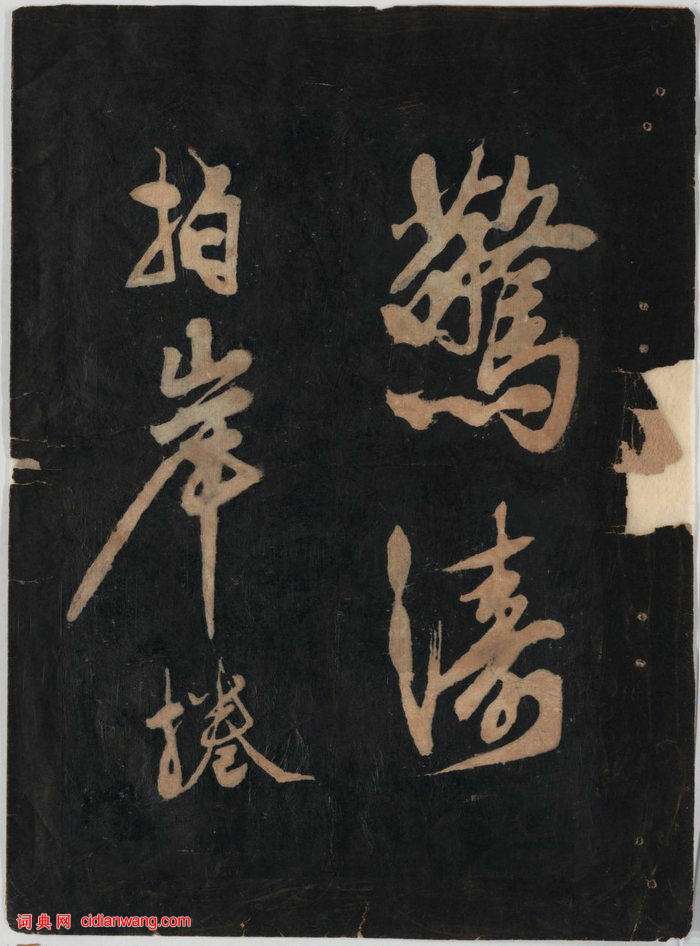 驚濤
拍岸捲
词典网 cidianwang.com